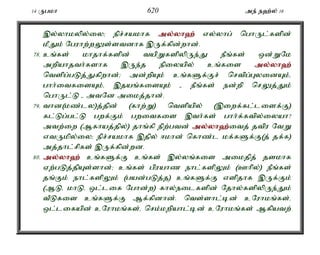 14 ருபமா 620 அந் நஹ்ல் 16
இல்லாமலில்லை; நிச்சயமாக அல்லாஹ் எல்லாப் பொருட்களின்
மீதும் பேராற்றலுள்ளவனாக இருக்கின்றான்.
78. உங்கள் மாதாக்களின் வயிறுகளிலிருந்து நீங்கள் ஒன்றுமே
அறியாதவர்களாக இருந்த நிலையில் உங்களை அல்லாஹ்
வெளிப்படுத்துகிறான்; அன்றியும் உங்களுக்குச் செவிப்புலனையும்,
பார்வைகளையும், இதயங்களையும் - நீங்கள் நன்றி செலுத்தும்
பொருட்டு - அவனே அமைத்தான்.
79. வான(மண்டல)த்தின் (காற்று) வெளியில் (இறைக்கட்டளைக்கு)
கட்டுப்பட்டு பறக்கும் பறவைகளை இவர்கள் பார்க்கவில்லையா?
அவற்றை (ஆகாயத்தில்) தாங்கி நிற்பவன் அல்லாஹ்வைத் தவிர வேறு
எவருமில்லை; நிச்சயமாக இதில் ஈமான் கொண்ட மக்களுக்கு(த் தக்க)
அத்தாட்சிகள் இருக்கின்றன.
80. அல்லாஹ் உங்களுக்கு உங்கள் இல்லங்களை அமைதித் தளமாக
ஏற்படுத்தியுள்ளான்; உங்கள் பிரயாண நாட்களிலும் (ஊரில்) நீங்கள்
தங்கும் நாட்களிலும் (பயன்படுத்த) உங்களுக்கு எளிதாக இருக்கும்
(ஆடு, மாடு, ஒட்டகை போன்ற) கால்நடைகளின் தோல்களிலிருந்தும்
வீடுகளை உங்களுக்கு ஆக்கினான். வெள்ளாட்டின் உரோமங்கள்,
ஒட்டகையின் உரோமங்கள், செம்மறியாட்டின் உரோமங்கள் ஆகியவற்